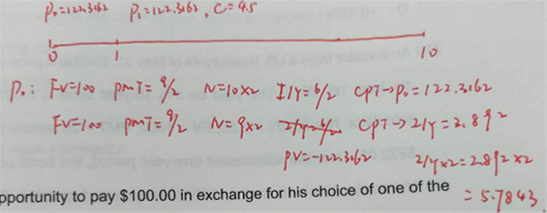 P₀=122.3162 P₁=122.3162, C=4.5
0 1 10
P₀: FV=100 PMT=9/2 N=10×2 I/Y=6/2 CPT→P₀=122.3162
FV=100 PMT=9/2 N=9×2 CPT→I/Y=2.892
PV=-122.3162 I/Y×2=2.892×2
=5.7843
pportunity to pay $100.00 in exchange for his choice of one of the